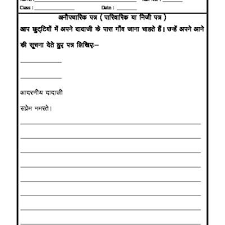 Class : ____________ Date : ________
अनौपचारिक पत्र ( पारिवारिक या निजी पत्र )
आप छुट्टियों में अपने दादाजी के पास गाँव जाना चाहते हैं। उन्हें अपने आने
की सूचना देते हुए पत्र लिखिए:–
आदरणीय दादाजी
सप्रेम नमस्ते।